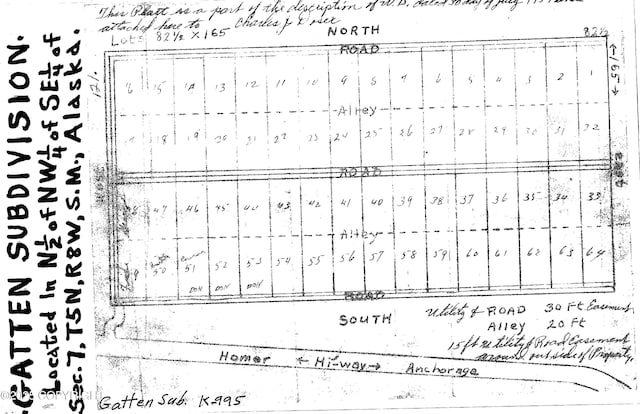 GATTEN SUBDIVISION.
Located In N½ of NW¼ of SE¼ of
Sec. 7, T5N, R8W, S.M., Alaska.
This Platt is a part of the description of W.D. dated 30 day of July
attached here to Charles J
Lots 82½ X 165
NORTH
82½
ROAD
←165→
15 14 13 12 11 10 9 8 7 6 5 4 3 2 1
Alley
18 19 20 21 22 23 24 25 26 27 28 29 30 31 32
ROAD
ROAD
47 46 45 44 43 42 41 40 39 38 37 36 35 34 33
Alley
50 51 52 53 54 55 56 57 58 59 60 61 62 63 64
ROAD
SOUTH
Utility & ROAD 30 Ft Easement
Alley 20 Ft
15 ft Utility & Road Easement
around outside of Property.
Homer ← Hi-way → Anchorage
Gatten Sub. K-995